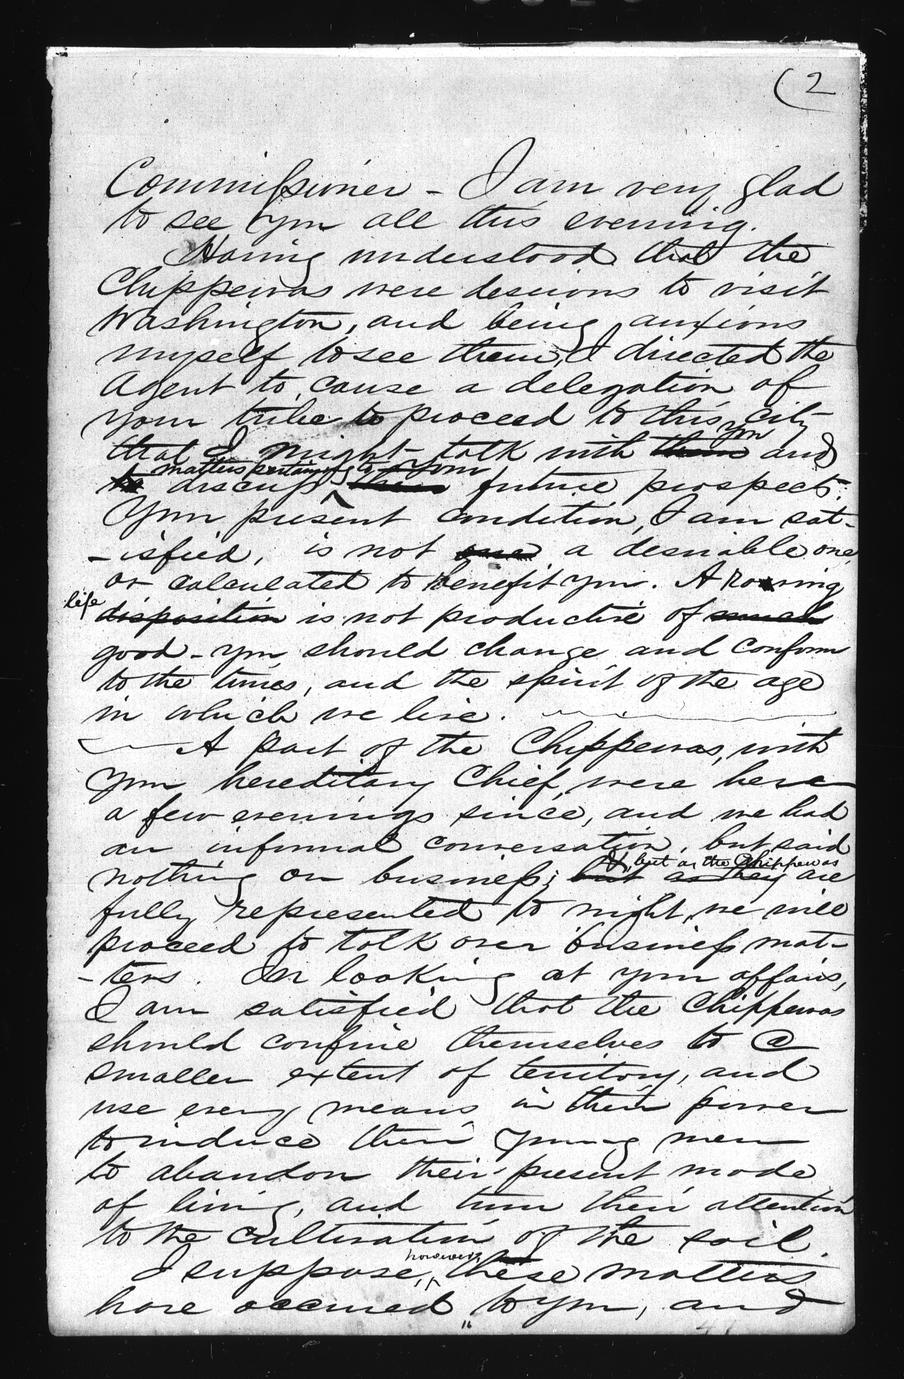 (2
Commissioner - I am very glad
to see you all this evening.
Having understood that the
Chippewas were desirous to visit
Washington, and being anxious
myself to see them, I directed the
Agent to cause a delegation of
your tribe to proceed to this city
that I might talk with them you and
to discuss matters pertaining to your future prospects.
Your present condition, I am sat-
-isfied, is not a desirable one,
or calculated to benefit you. A roving
life disposition is not productive of much
good - you should change and conform
to the times, and the spirit of the age
in which we live.
A part of the Chippewas, with
your hereditary Chief, were here
a few evenings since, and we had
an informal conversation, but said
nothing on business; but as they but as the Chippewas are
fully represented to night, we will
proceed to talk over business mat-
-ters. In looking at your affairs,
I am satisfied that the Chippewas
should confine themselves to a
smaller extent of territory, and
use every means in their power
to induce their young men
to abandon their present mode
of living, and turn their attention
to the cultivation of the soil.
I suppose, however, these matters
have occurred to you, and